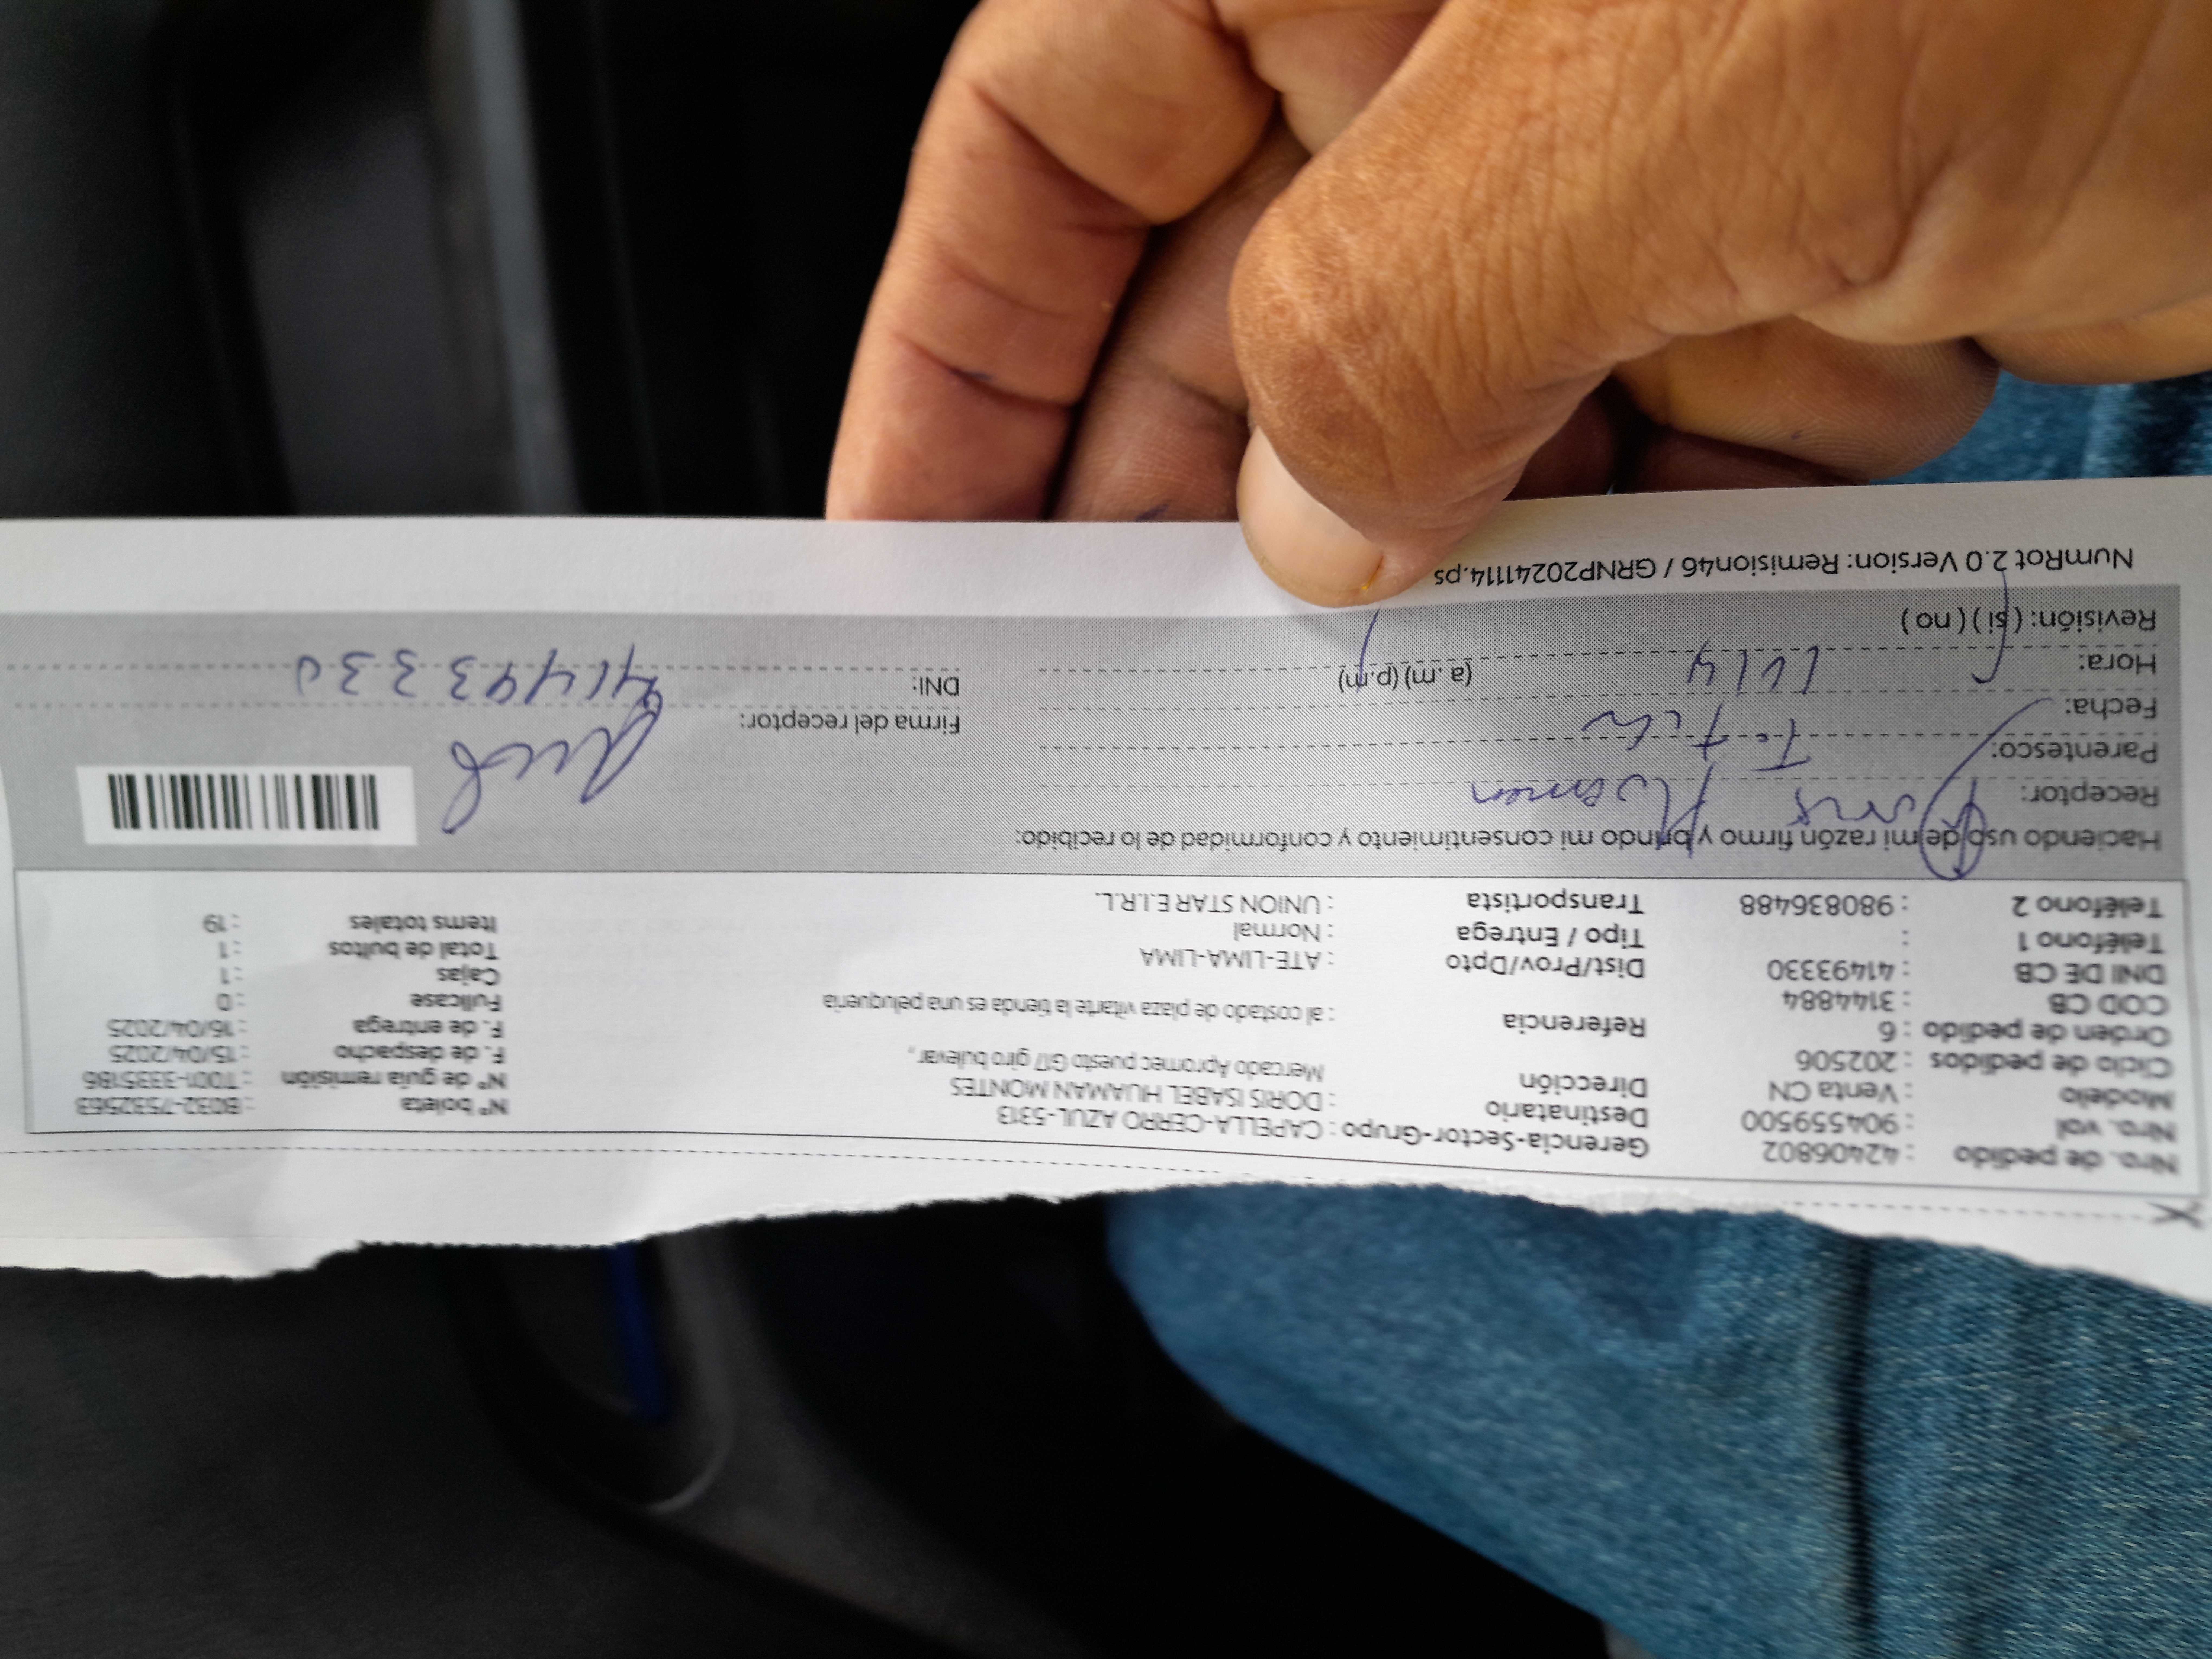 Nro. de pedido : 42406802
Nro. vol : 904559500
Modelo : Venta CN
Ciclo de pedidos : 202506
Orden de pedido : 6
COD CB : 3144884
DNI DE CB : 41493330
Teléfono 1 :
Teléfono 2 : 980836488
Gerencia-Sector-Grupo : CAPELLA-CERRO AZUL-5313
Destinatario : DORIS ISABEL HUAMAN MONTES
Dirección Mercado Apromec puesto G17 giro bulevar,
Referencia : al costado de plaza vitarte la tienda es una peluqueria
Dist/Prov/Dpto : ATE-LIMA-LIMA
Tipo / Entrega : Normal
Transportista : UNION STAR E.I.R.L.
N° boleta : B032-7532563
N° de guía remisión : T001-3335186
F. de despacho : 15/04/2025
F. de entrega : 16/04/2025
Fullcase : 0
Cajas : 1
Total de bultos : 1
Items totales : 19
Haciendo uso de mi razón firmo y brindo mi consentimiento y conformidad de lo recibido:
Receptor: Doris Huaman
Parentesco:
Fecha:
Hora: (a.m) (p.m)
Revisión: ( si ) ( no )
Firma del receptor:
DNI: 41493330
NumRot 2.0 Version: Remision46 / GRNP20241114.ps